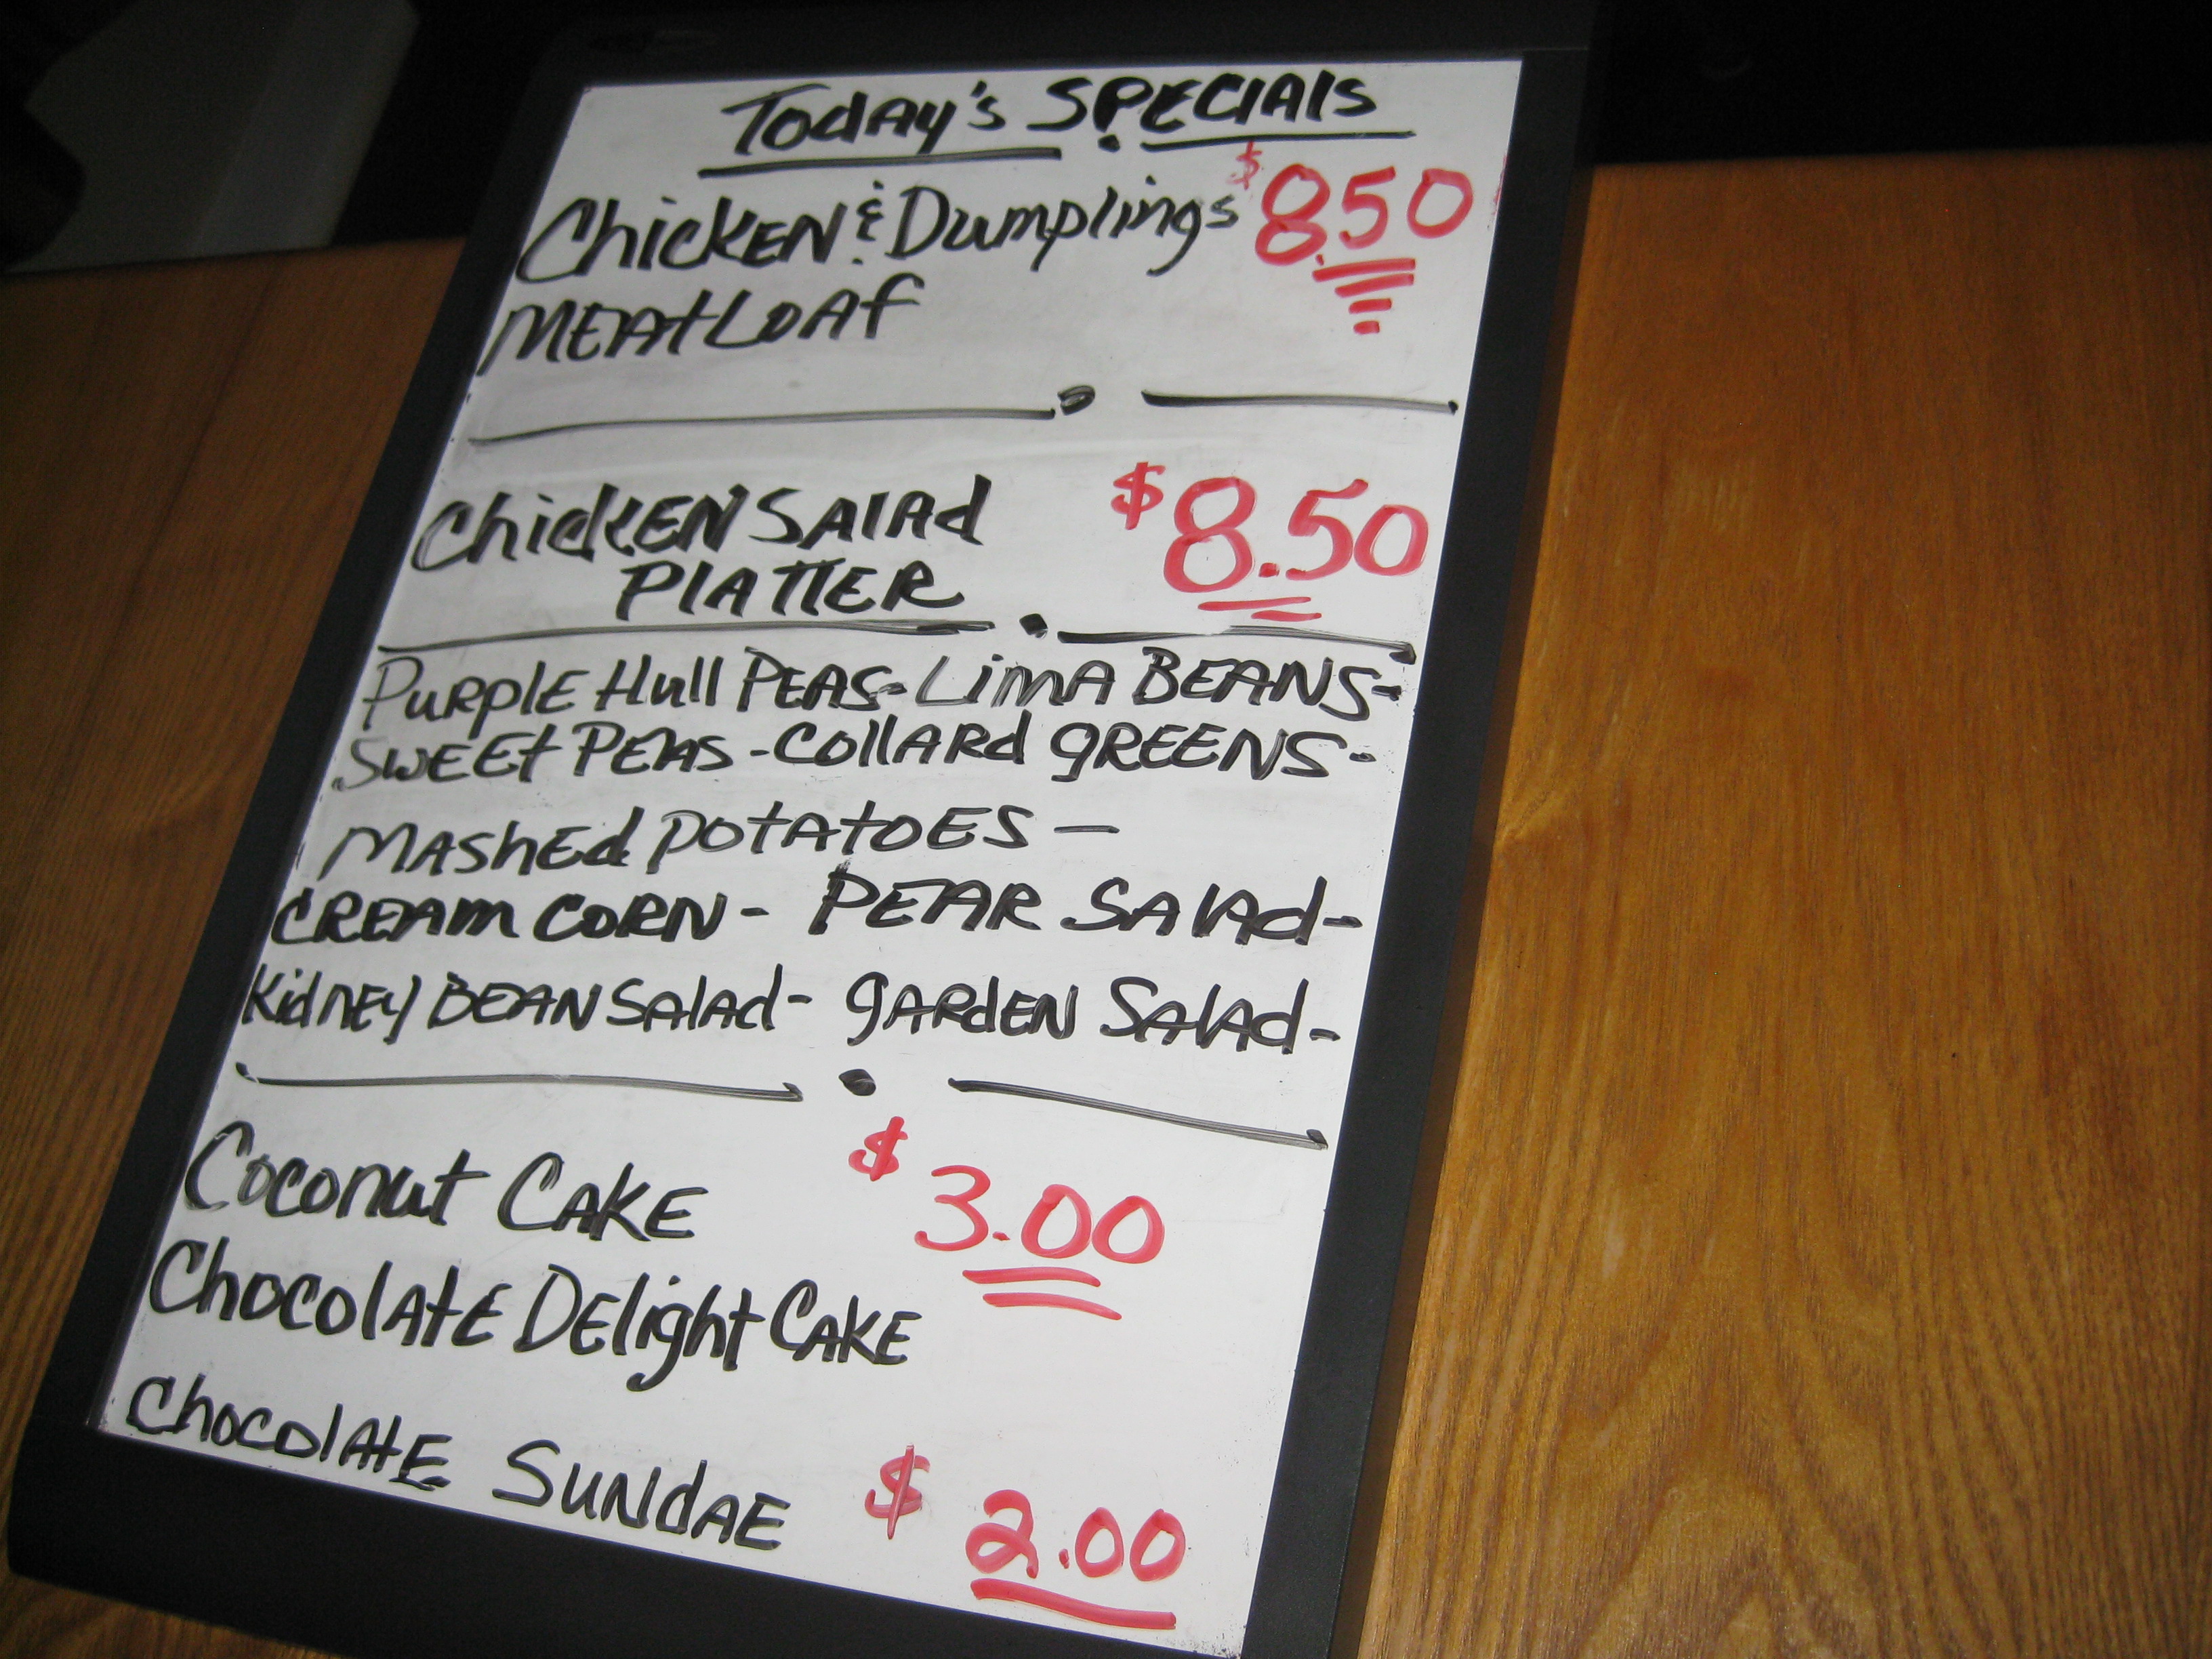 Today's Specials
Chicken & Dumplings $8.50
Meatloaf
Chicken Salad $8.50
Platter
Purple Hull Peas-Lima Beans-
Sweet Peas-Collard greens-
Mashed potatoes-
Cream Corn- Pear Salad-
Kidney Bean Salad- garden Salad-
Coconut Cake $3.00
Chocolate Delight Cake
Chocolate Sundae $2.00